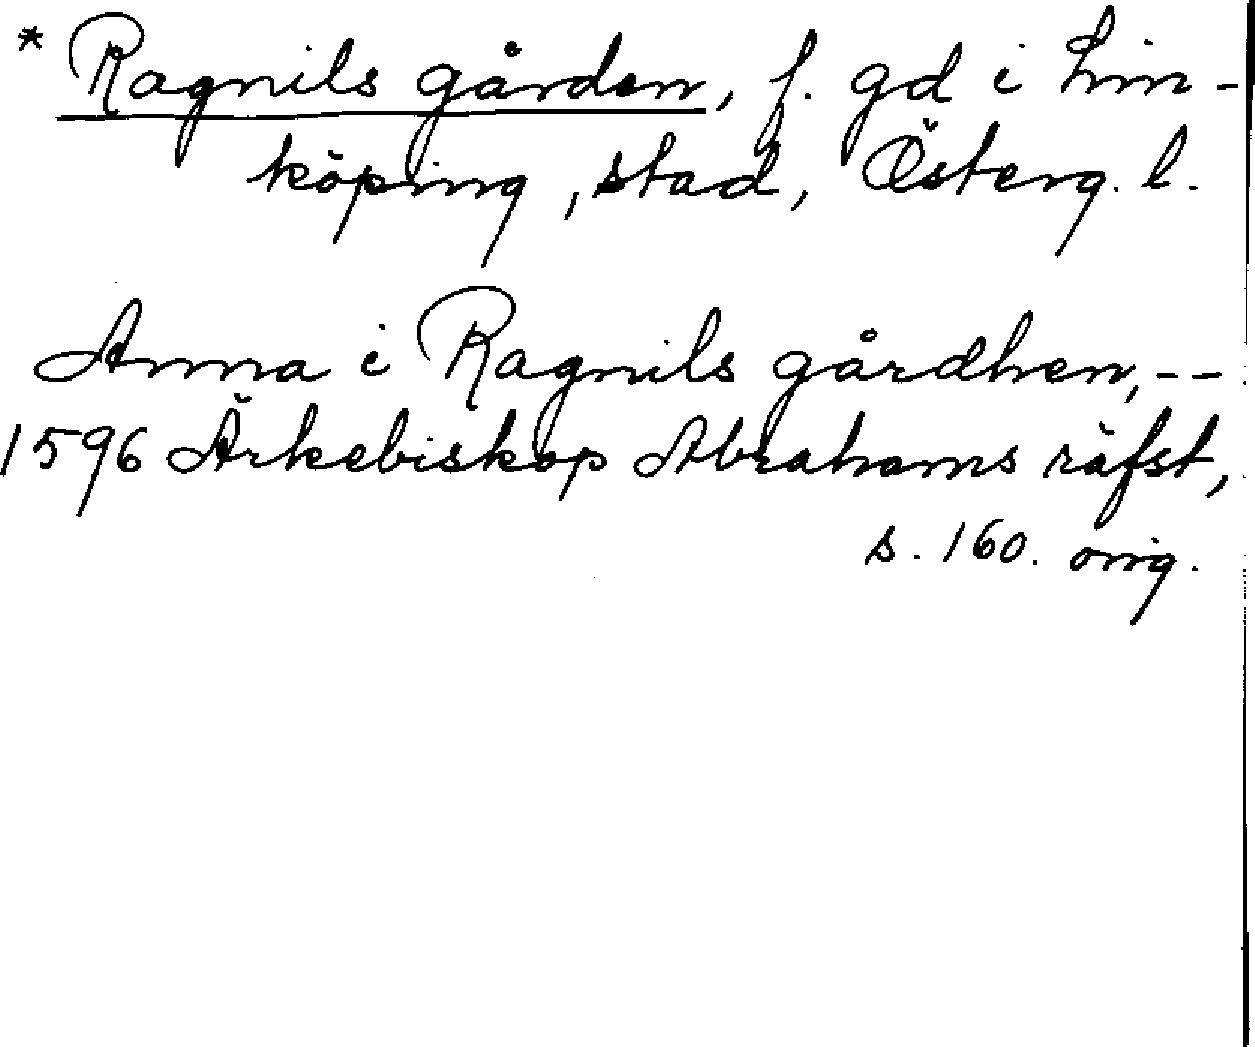 * Ragnils gården, f. gd i Lin-
köping, stad, Österg. l.
Anna i Ragnils gårdhen, --
1596 Ärkebiskop Abrahams räfst,
s. 160. orig.